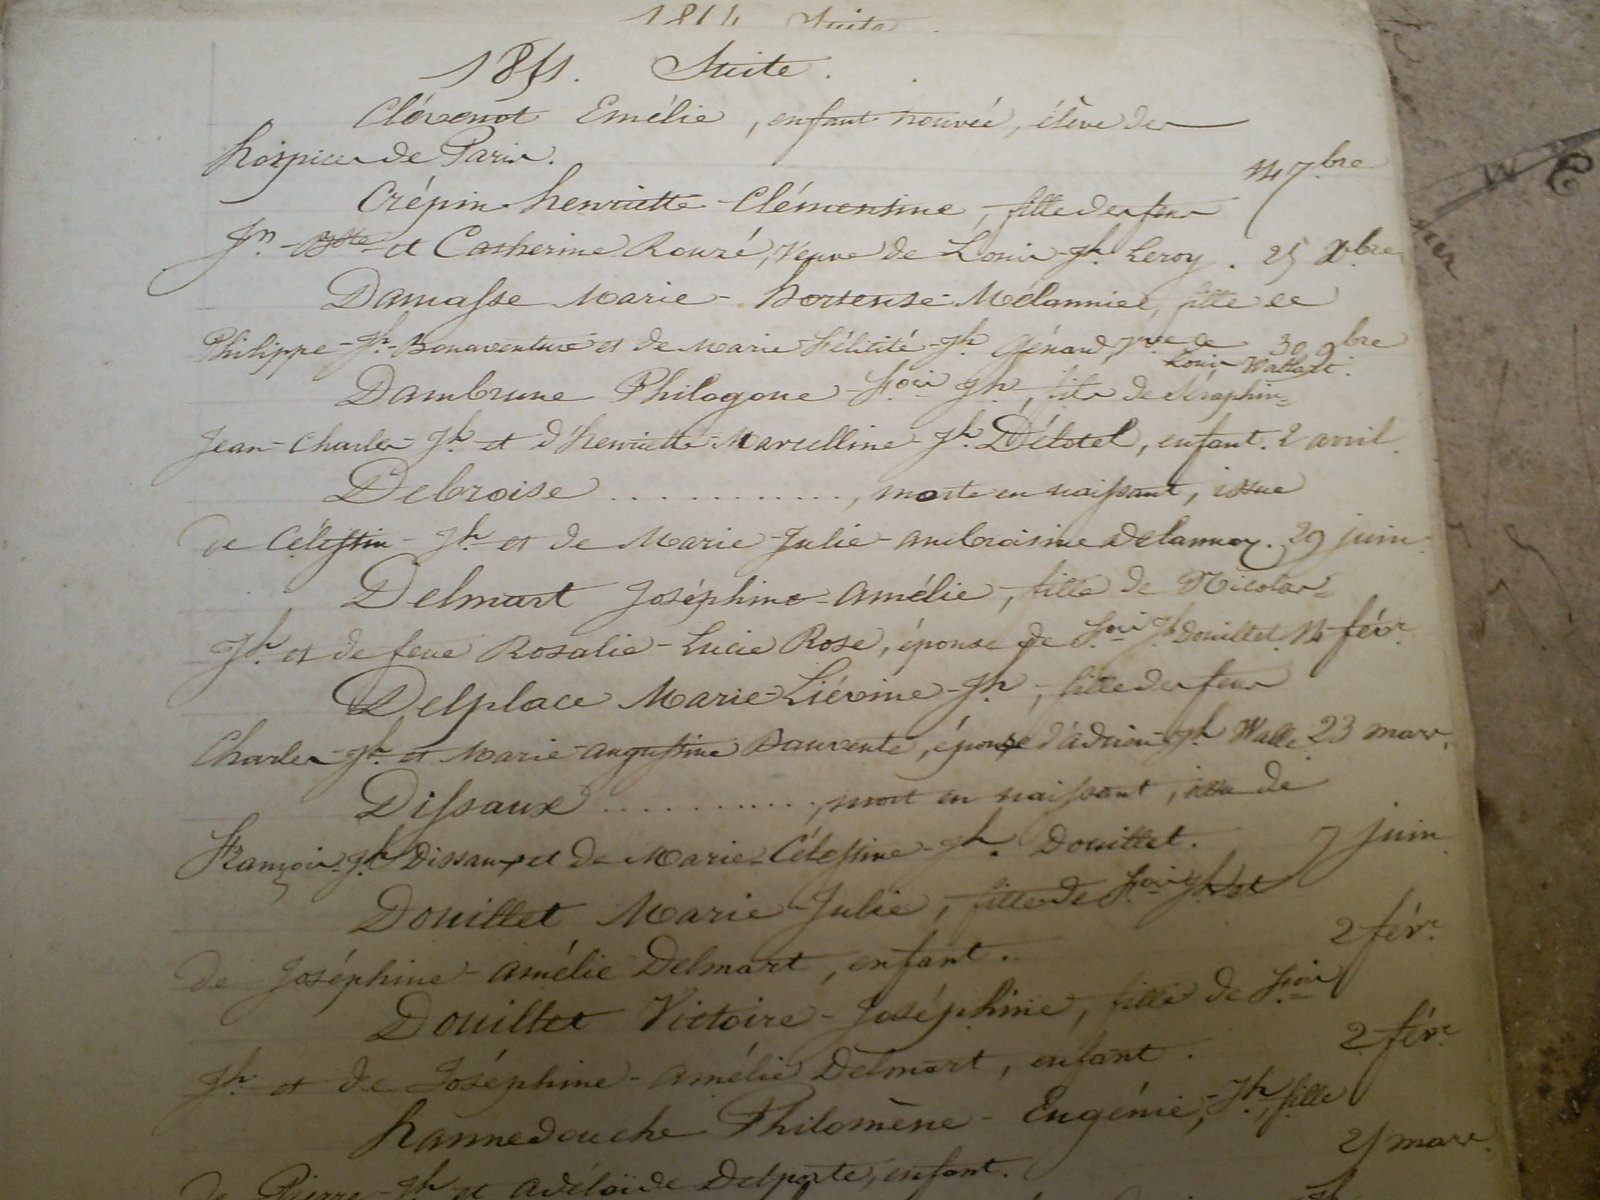 Suite
Suite.
Clévenot Emélie, enfant trouvée, élève des
hospices de Paris. 7.bre
Crépin henriette - Clémentine, fille des feux
Jn - Bste et Catherine Rouzé, Veuve de Louis - Jh. Leroy. 25 Xbre
Damasse Marie - hortense - Mélannie, fille de
Philippe - Jh. - Bonaventure et de Marie Félicité - Jh. Génard, Vve de 30 9bre
Louis Wattart.
Dambrune Philogone - Fois Jh, fils de Séraphin =
Jean - Charles - Jh et d'henriette - Marcelline - Jh. Délétel, enfant. 2 avril.
Debroise ............, morte en naissant, issue
de Célestin - Jh et de Marie - Julie - ambroisine Delannoy. 29 juin
Delmart Joséphine - amélie, fille de Nicolas =
Jh. et de feue Rosalie - Lucie Rose, épouse de Fois Jh. Douillet. févr.
Delplace Marie - Liévine - Jh, fille des feux
Charles - Jh. et Marie - augustine, épouse d'adrien - Jh Walle. 23 mars.
Dissaux ..........., mort en naissant, issu de
François - Jh Dissaux et de Marie - Célestine - Jh. Douillet. 7 juin
Douillet Marie Julie, fille de Fois Jh. et
de Joséphine - amélie Delmart, enfant. 2 févr.
Douillet Victoire - Joséphine, fille de Fois
Jh et de Joséphine - amélie Delmart, enfant. 2 févr
hannedouche Philomène - Eugénie, - Jh, fille
de Pierre - Jh et adélaïde Delporte, enfant. mars